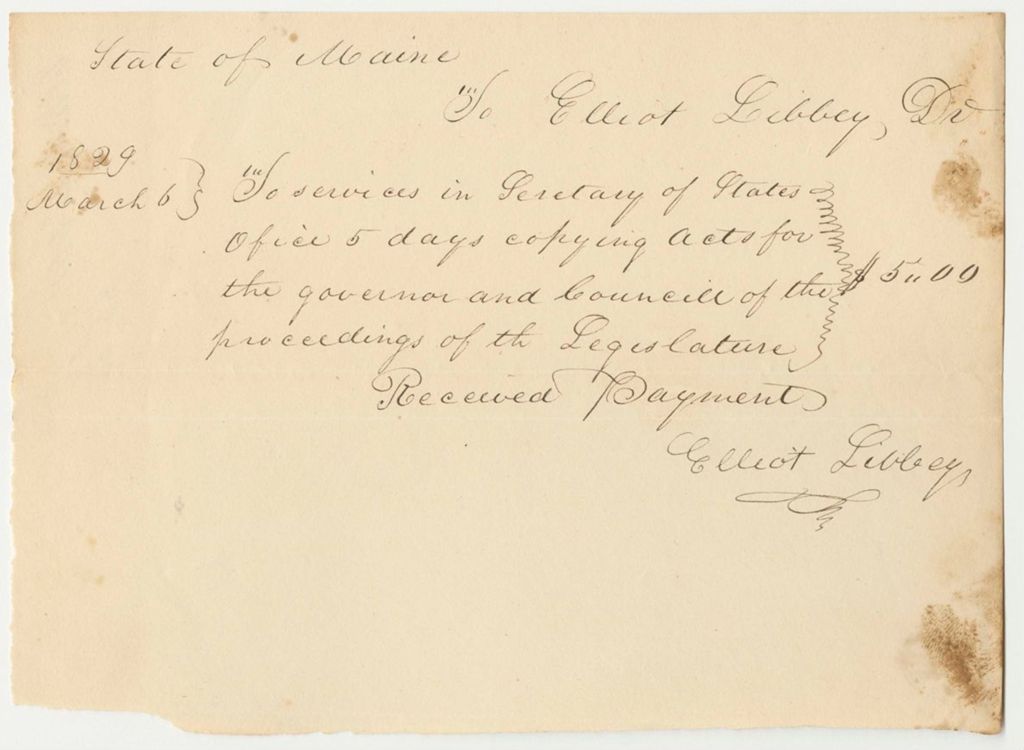 State of Maine
To Elliot Libbey, Dr
1829
March 6 } To services in Secretary of States
Ofice 5 days copying Acts for
the governor and Councill of the $ 5,,00
proceedings of th Legislature
Received Payment
Elliot Libbey